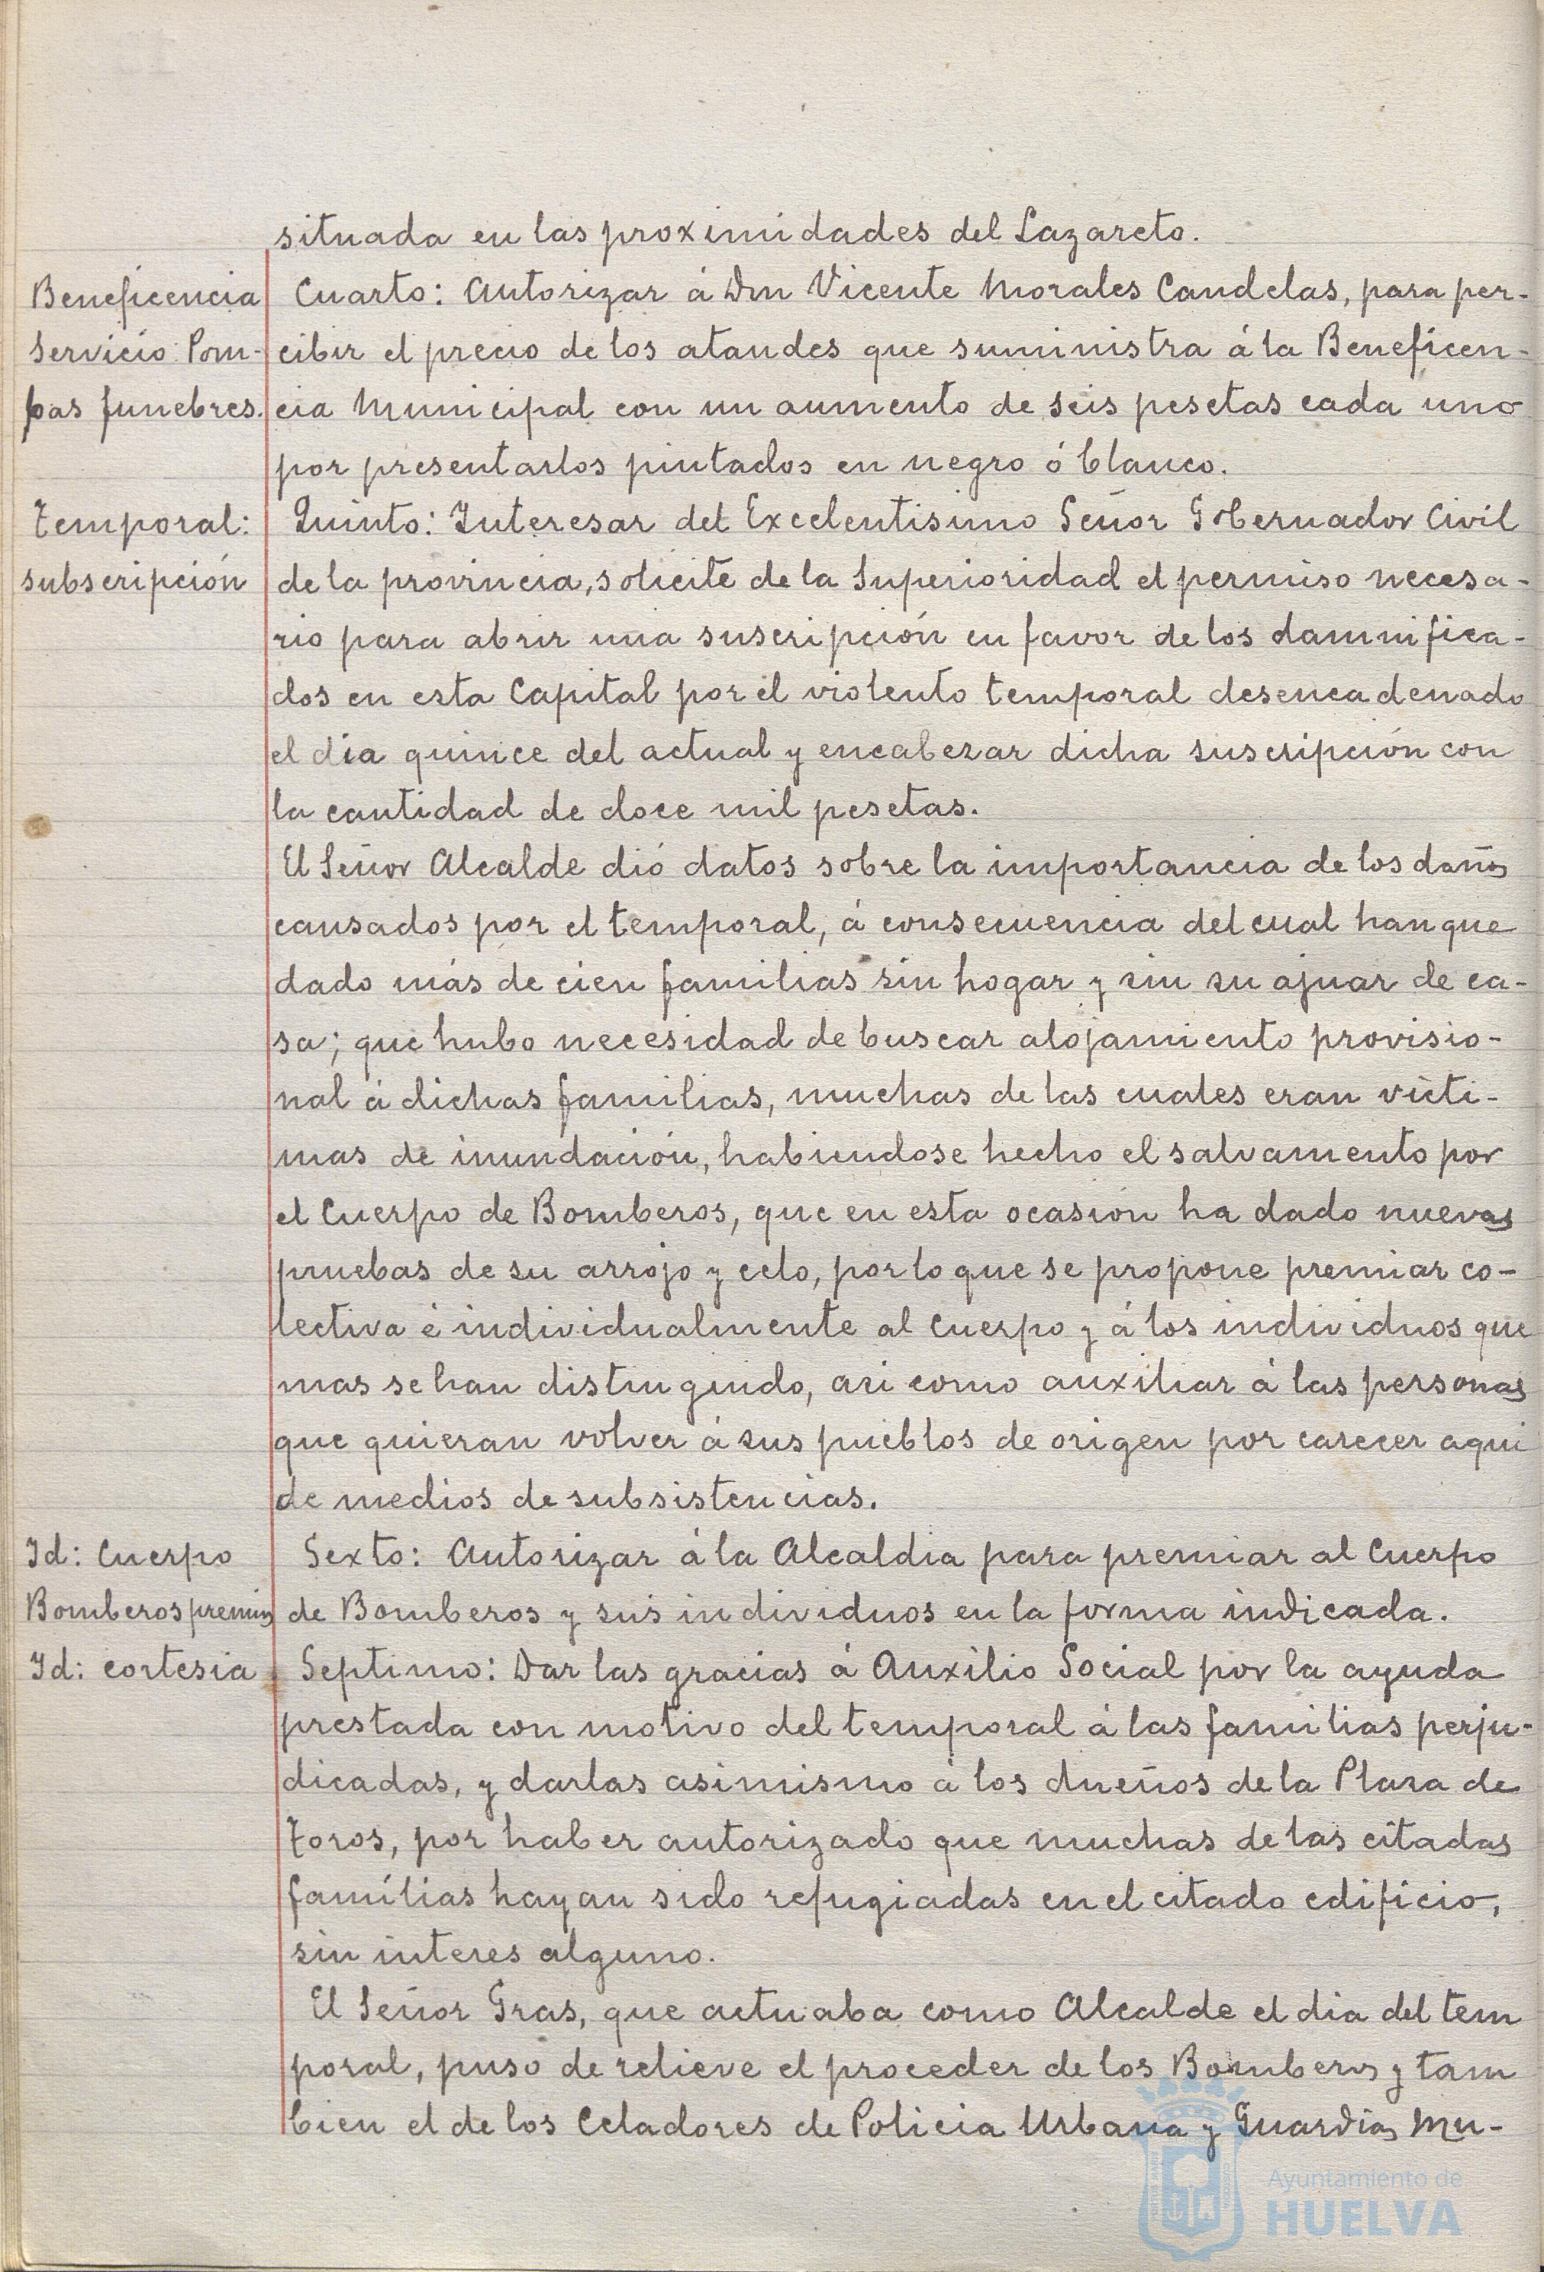 situada en las proximidades del Lazareto.
Beneficencia
Servicio Pom-
pas funebres.
Cuarto: Autorizar á Don Vicente Morales Candelas, para per-
cibir el precio de los ataudes que suministra á la Beneficen-
cia Municipal con un aumento de seis pesetas cada uno
por presentarlos pintados en negro ó blanco.
Temporal:
subscripción
Quinto: Interesar del Excelentisimo Señor Gobernador Civil
de la provincia, solicite de la Superioridad el permiso necesa-
rio para abrir una suscripción en favor de los damnifica-
dos en esta Capital por el violento temporal desencadenado
el dia quince del actual y encabezar dicha suscripción con
la cantidad de doce mil pesetas.
El Señor Alcalde dió datos sobre la importancia de los daños
causados por el temporal, á consecuencia del cual han que
dado más de cien familias sin hogar y sin su ajuar de ca-
sa; que hubo necesidad de buscar alojamiento provisio-
nal á dichas familias, muchas de las cuales eran vícti-
mas de inundación, habiendose hecho el salvamento por
el Cuerpo de Bomberos, que en esta ocasión ha dado nuevas
pruebas de su arrojo y celo, por lo que se propone premiar co-
lectiva é individualmente al Cuerpo y á los individuos que
mas se han distinguido, asi como auxiliar á las personas
que quieran volver á sus pueblos de origen por carecer aqui
de medios de subsistencias.
Id: Cuerpo
Bomberos premios
Sexto: Autorizar á la Alcaldia para premiar al Cuerpo
de Bomberos y sus individuos en la forma indicada.
Id: cortesia
Septimo: Dar las gracias á Auxilio Social por la ayuda
prestada con motivo del temporal á las familias perju-
dicadas, y darlas asimismo á los dueños de la Plaza de
Toros, por haber autorizado que muchas de las citadas
familias hayan sido refugiadas en el citado edificio,
sin interes alguno.
El Señor Gras, que actuaba como Alcalde el dia del tem
poral, puso de relieve el proceder de los Bomberos y tam
bien el de los Celadores de Policia Urbana y Guardias Mu-
Ayuntamiento de
HUELVA